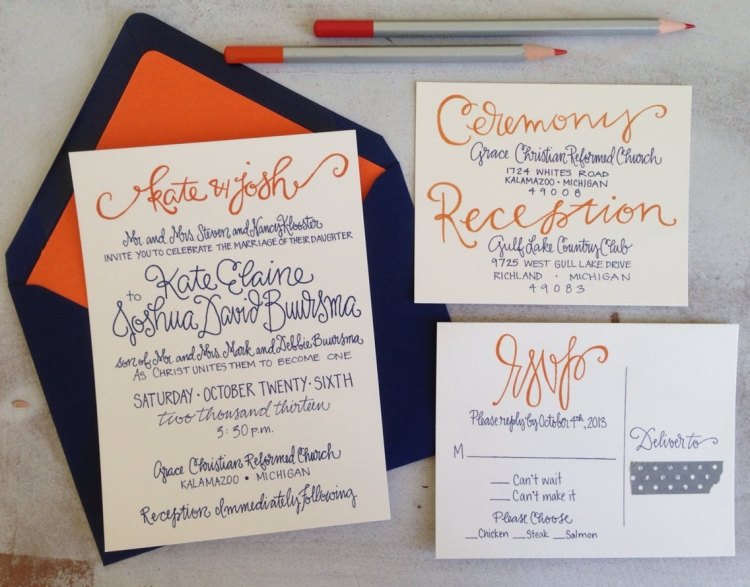 kate & josh
Mr. and Mrs. Steven and Nancy Klooster
INVITE YOU TO CELEBRATE THE MARRIAGE OF THEIR DAUGHTER
Kate Elaine
to
Joshua David Buursma
son of Mr. and Mrs. Mark and Debbie Buursma
AS CHRIST UNITES THEM TO BECOME ONE
SATURDAY • OCTOBER TWENTY • SIXTH
two thousand thirteen
3:30 p.m.
Grace Christian Reformed Church
KALAMAZOO • MICHIGAN
Reception Immediately Following
Ceremony
Grace Christian Reformed Church
1724 WHITES ROAD
KALAMAZOO • MICHIGAN
49008
Reception
Gull Lake Country Club
9725 WEST GULL LAKE DRIVE
RICHLAND • MICHIGAN
49083
rsvp
Please reply by October 4th, 2013
M
Can't wait
Can't make it
Please Choose
Chicken Steak Salmon
Deliver to